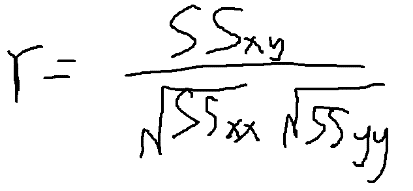 r = SSxy / √SSxx √SSyy